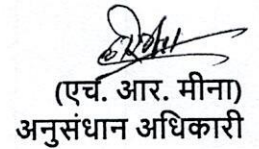 (एच. आर. मीना)
अनुसंधान अधिकारी